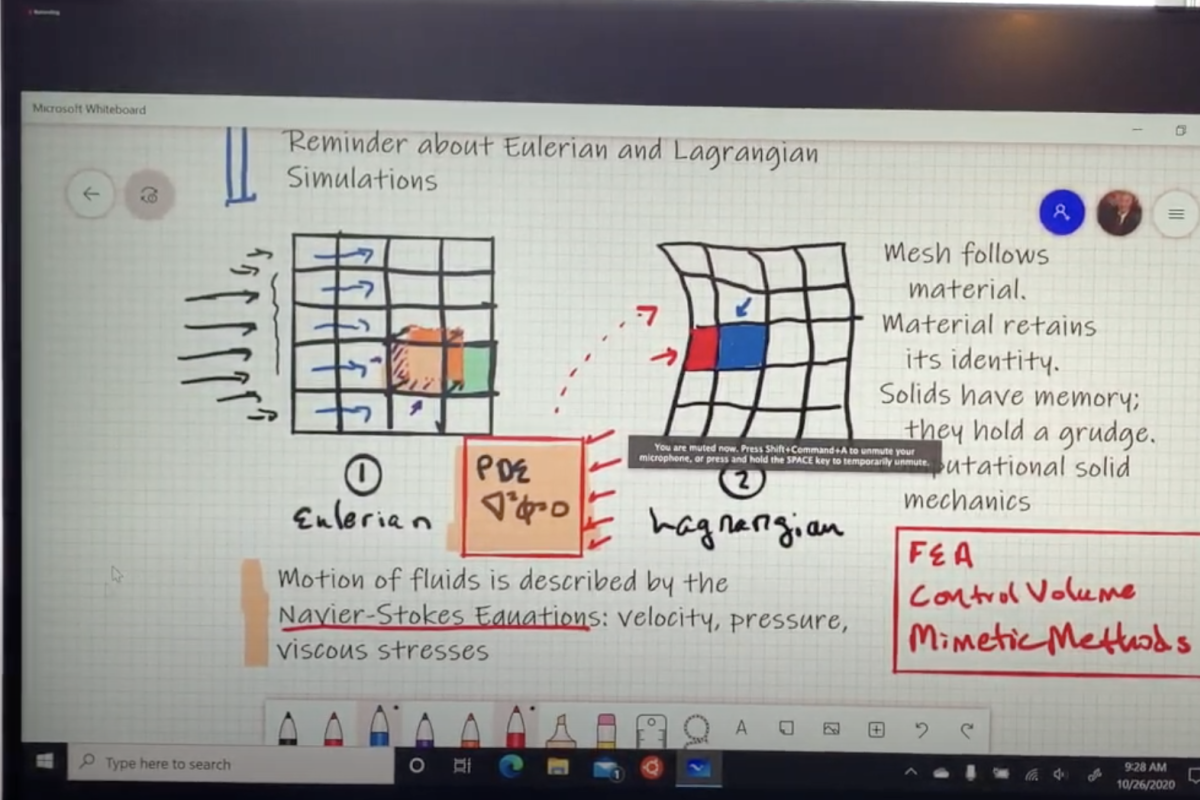 Recording
Microsoft Whiteboard
Reminder about Eulerian and Lagrangian
Simulations
Mesh follows
material.
Material retains
its identity.
Solids have memory;
they hold a grudge.
putational solid
mechanics
You are muted now. Press Shift+Command+A to unmute your
microphone, or press and hold the SPACE key to temporarily unmute.
1
Eulerian
PDE
∇²φ=0
2
Lagrangian
FEA
Control Volume
Mimetic Methods
Motion of fluids is described by the
Navier-Stokes Equations: velocity, pressure,
viscous stresses
A
Type here to search
1
9:28 AM
10/26/2020